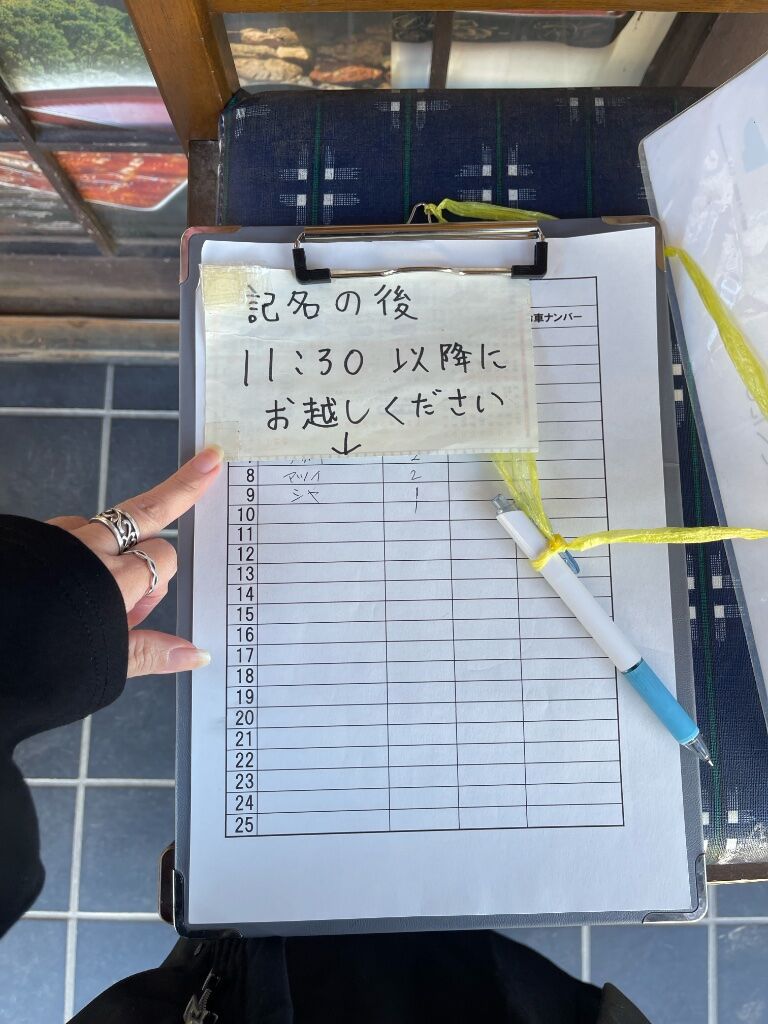 記名の後
11:30 以降に
お越しください
↓
車ナンバー
8 マツイ 2
9 シャ 1
10
11
12
13
14
15
16
17
18
19
20
21
22
23
24
25